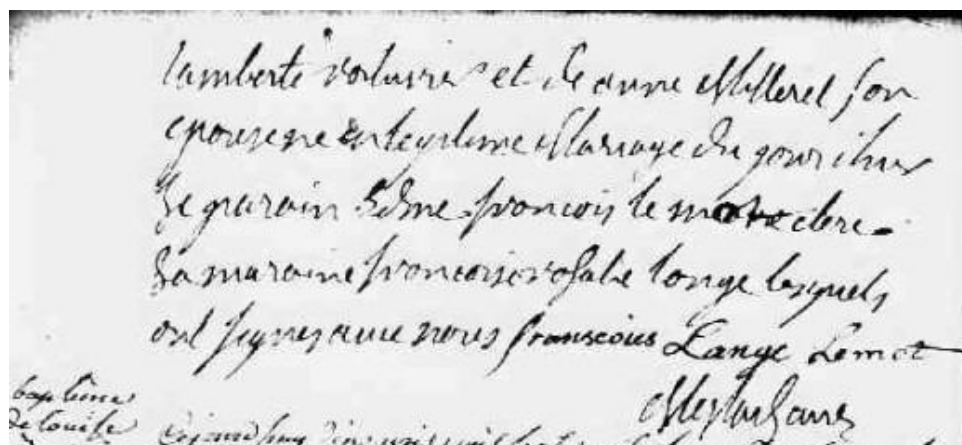 lamberte voiturier et Jeanne Milleret son
epouse ne en legitime Mariage du jour d'hier
Le parain Edme francois le mot clerc
La maraine francoise rosalie lange lesquels
ont signes avec nous franscoies Lange Lemot
baptême
de louise